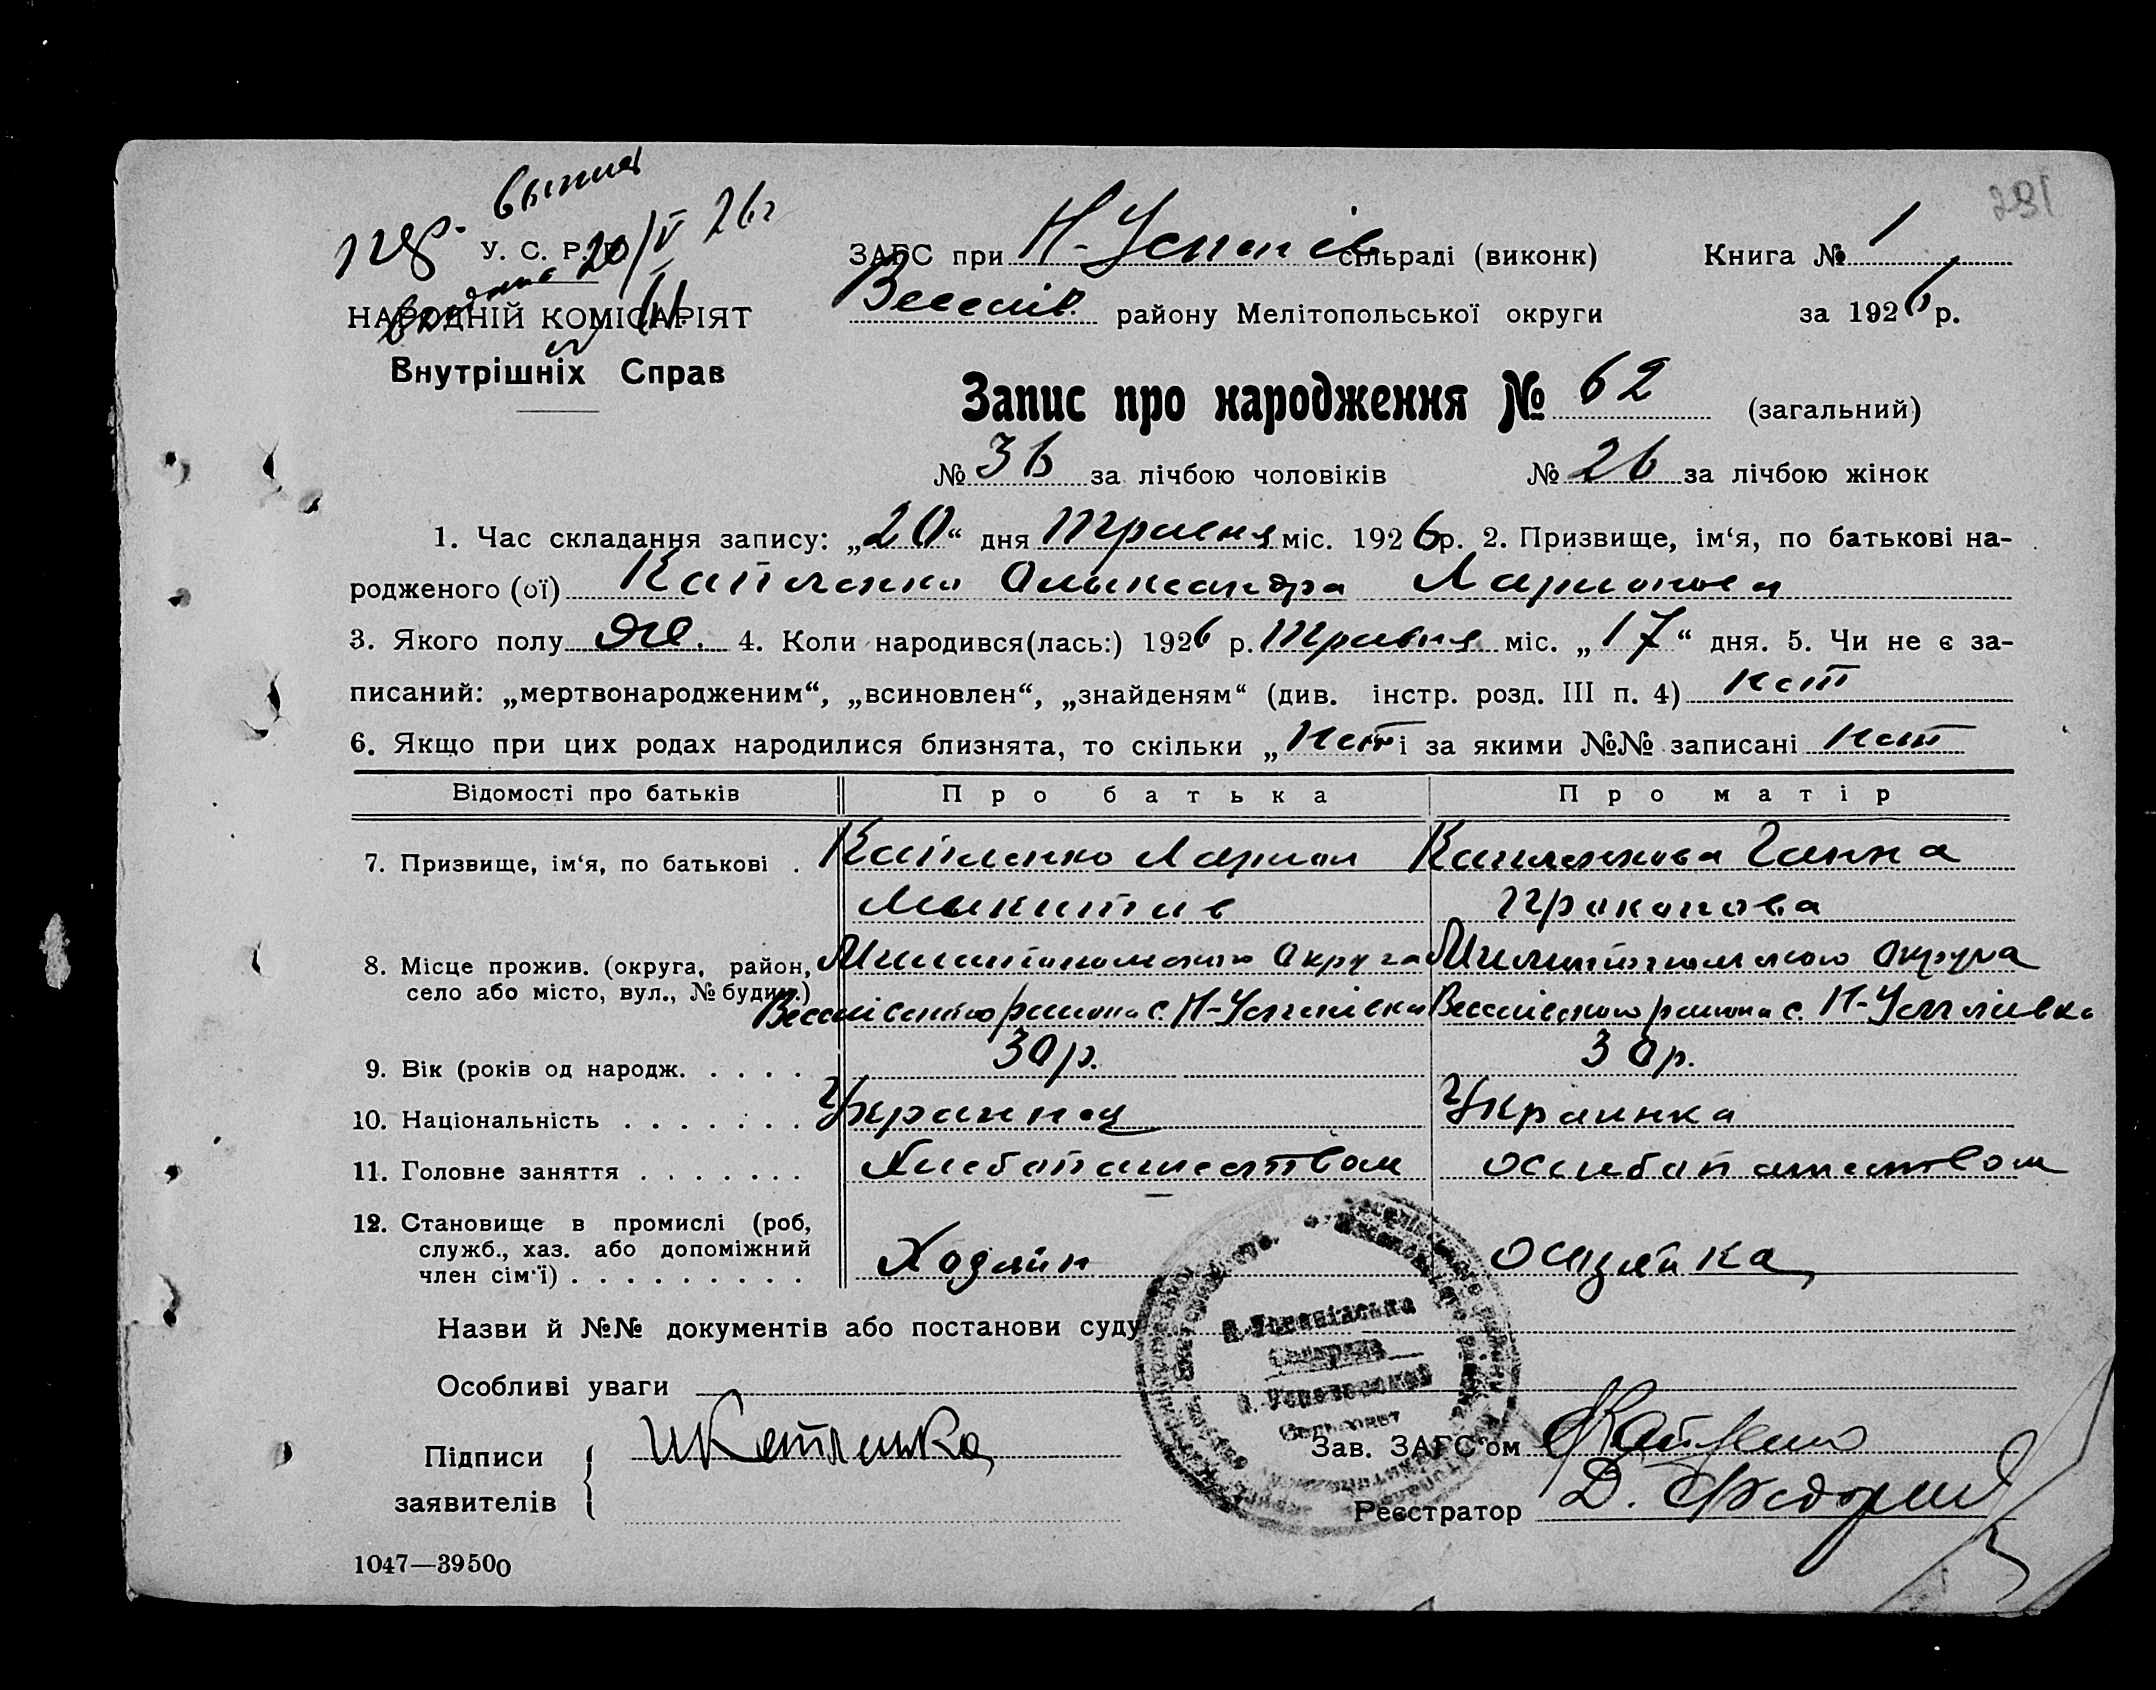 291
У. С. Р. Р. 20/V 26 г
НАРОДНІЙ КОМІСАРІЯТ
Внутрішніх Справ
ЗАГС при Н-Успенів сільраді (виконк) Книга № 1
Веселів. району Мелітопольської округи за 1926 р.
Запис про народження № 62 (загальний)
№ 36 за лічбою чоловіків № 26 за лічбою жінок
1. Час складання запису: „20“ дня Травня міс. 1926 р. 2. Призвище, ім‘я, по батькові на-
родженого (ої) Олександра Ларионова
3. Якого полу Жі. 4. Коли народився(лась:) 1926 р. Травня міс. „17“ дня. 5. Чи не є за-
писаний: „мертвонародженим“, „всиновлен“, „знайденям“ (див. інстр. розд. III п. 4) Нет
6. Якщо при цих родах народилися близнята, то скільки „Нет і за якими №№ записані Нет
Відомості про батьків Про батька Про матір
7. Призвище, ім‘я, по батькові . Ларион Ганна
Микитив Прокопова
8. Місце прожив. (округа, район, Округа Округа
село або місто, вул., № будин.) района с. района с.
9. Вік (років од народж. . . . . 30 р. 30 р.
10. Національність . . . . . . . Украинец Украинка
11. Головне заняття . . . . . . . Хлебопашеством
12. Становище в промислі (роб,
служб., хаз. або допоміжний Хозяин
член сім‘ї) . . . . . . . . .
Назви й №№ документів або постанови суду
Особливі уваги
Підписи
заявителів
Зав. ЗАГС‘ом
Реєстратор Д.
1047—39500